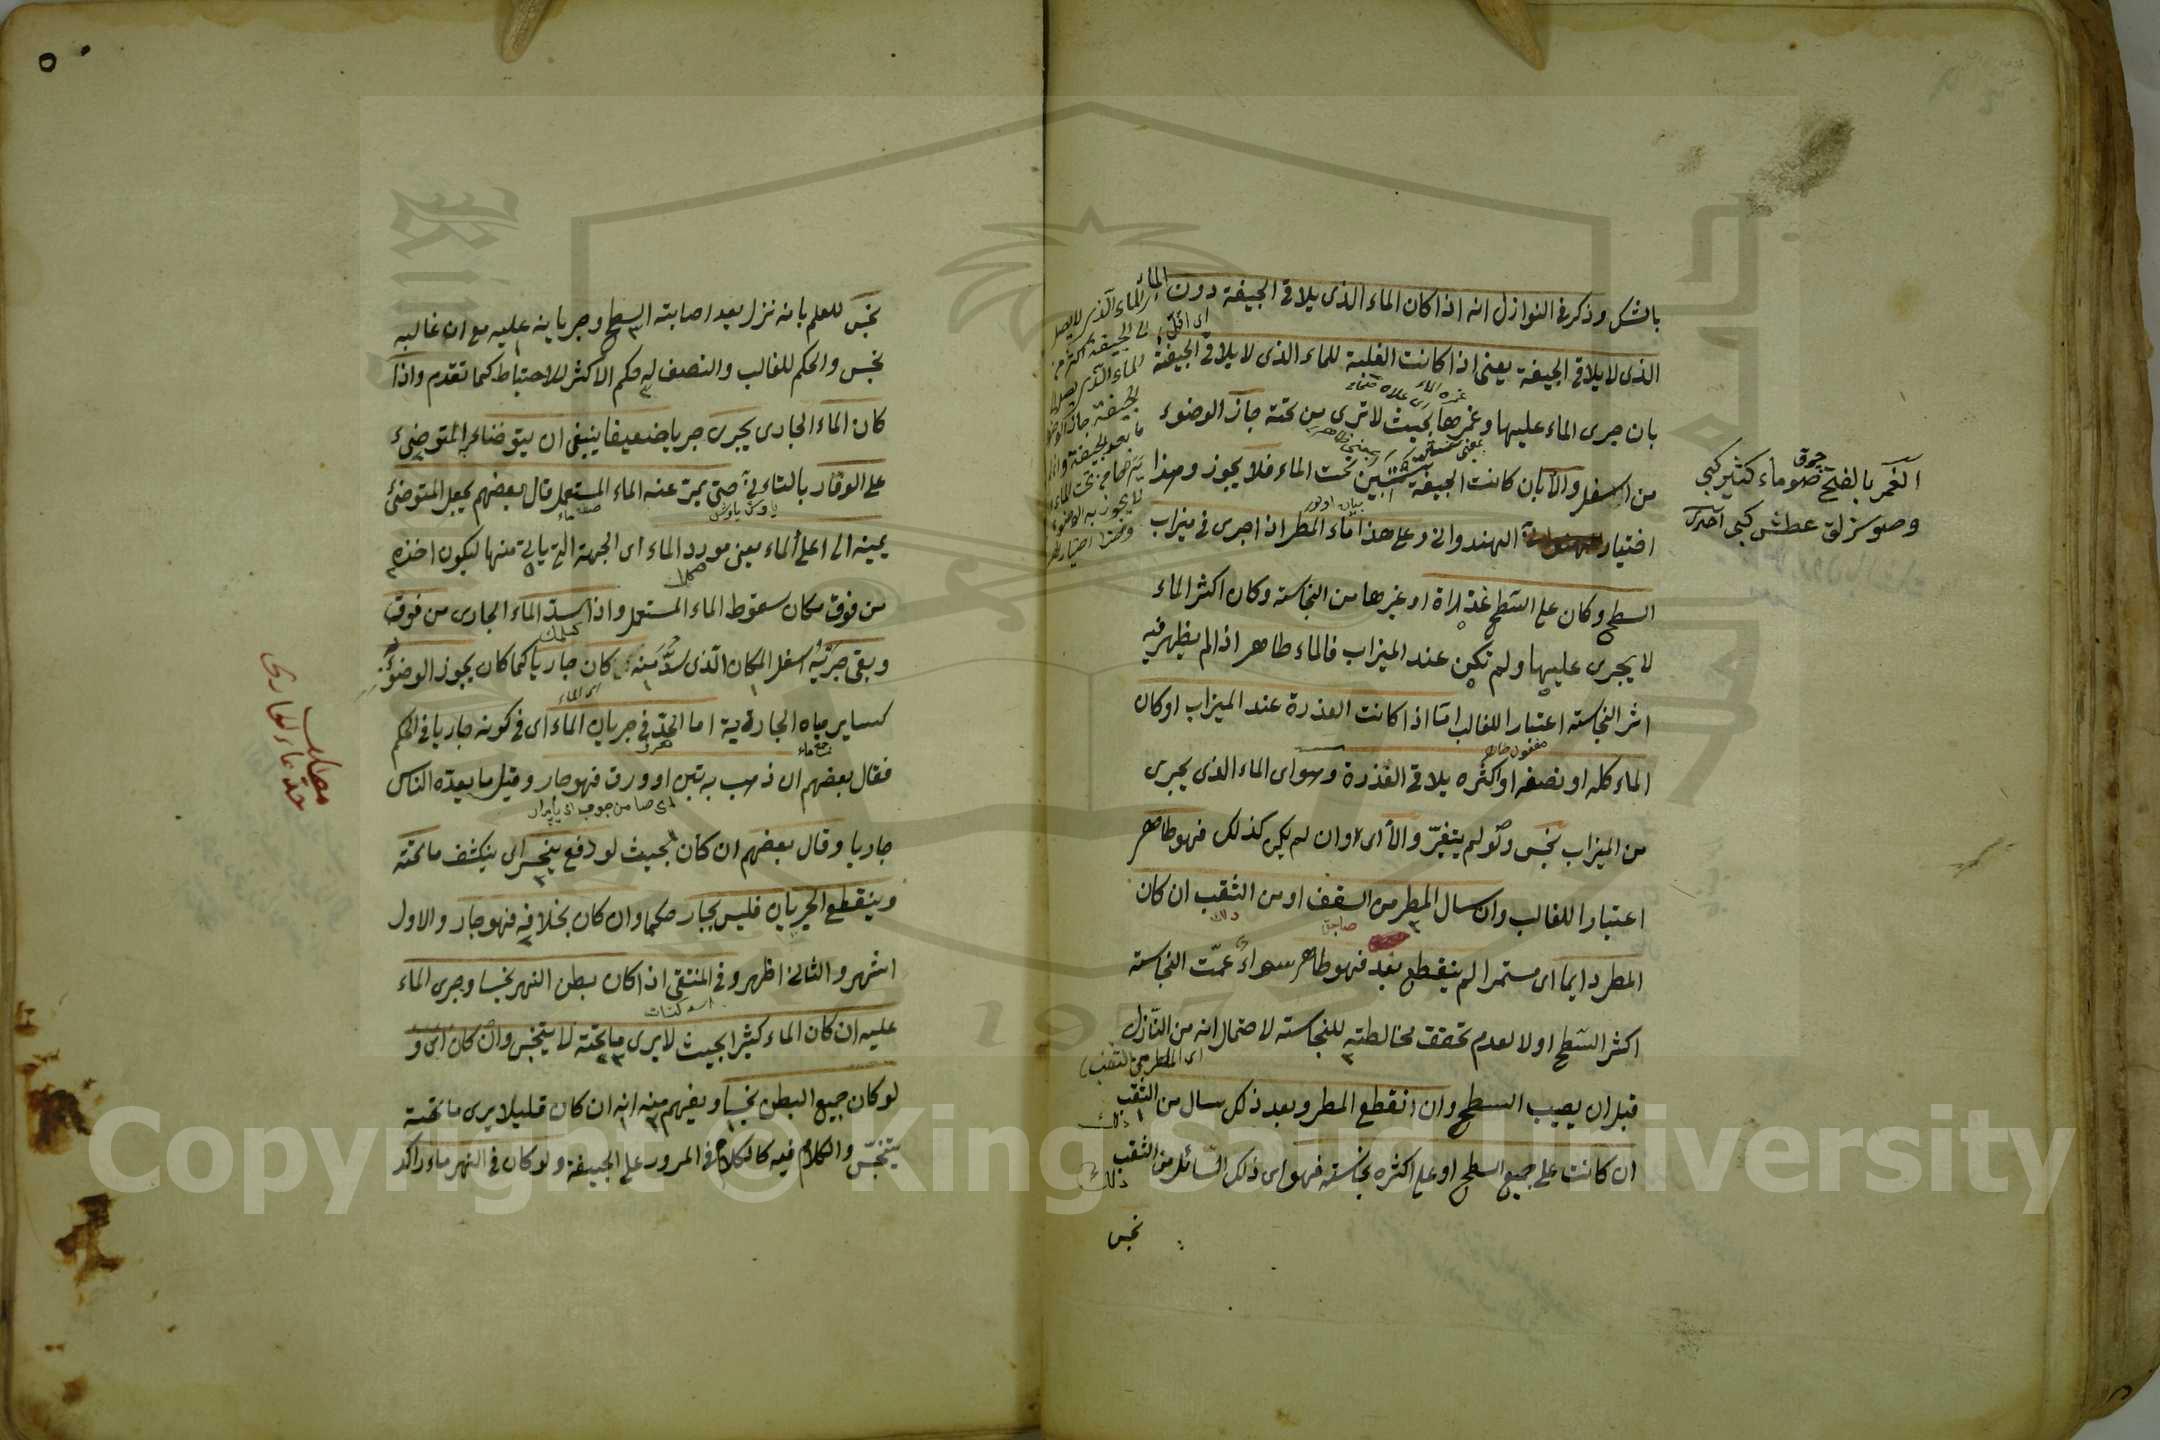 بالشك وذكر في النوازل انه اذا كان الماء الذى يلاقى الجيفة دون الماء
الذى لا يلاقى الجيفة يعنى اذا كانت الغلبة للماء الذى لا يلاقى الجيفة
بان جرى الماء عليها وغمرها بحيث لا ترى من تحته جاز الوضوء
من اسفل والا بان كانت الجيفة تستبين تحت الماء فلا يجوز وهذا
اختيار الهندوانى وعلى هذا ماء المطر اذا جرى فى ميزاب
السطح وكان على السطح عذراة او غيرها من النجاسة وكان اكثر الماء
لا يجرى عليها ولم تكن عند الميزاب فالماء طاهر اذا لم يظهر فيه
اثر النجاسة اعتبارا للغالب امّا اذا كانت العذرة عند الميزاب او كان
الماء كله او نصفه او اكثره يلاقى العذرة وهو اى الماء الذى يجرى
من الميزاب نجس ولو لم يتغيّر والا اى وان لم يكن كذلك فهو طاهر
اعتبارا للغالب وان سال المطر من السقف او من الثقب ان كان
المطر دايما اى مستمرا لم ينقطع بعد فهو طاهر سواء عمّت النجاسة
اكثر السّطح او لا لعدم تحقق مخالطته للنجاسة لاحتمال انه من النّازل
قبل ان يصيب السطح وان انقطع المطر وبعد ذلك سال من الثقب
ان كانت على جميع السطح او على اكثره نجاسة فهو اى ذلك السّائل من الثقب
نجس
الغمر بالفتح
ماء كثير كبى
وصوسزلق عطش كبى
اى اقلّ
الماء الّذى لا يصل
الى الجيفة اكثر من
الماء الّذى يصل
الجيفة جاز
اى المطر من الثقب
دلك
دلك
٥
نجس للعلم بانه نزل بعد اصابته السطح وجريانه عليه مع ان غالبه
نجس والحكم للغالب والنصف له حكم الاكثر للاحتياط كما تقدم واذا
كان الماء الجارى يجرى جريا ضعيفا ينبغى ان يتوضأ المتوضئ
على الوقار بالتانى حتى يمرّ عنه الماء المستعمل قال بعضهم يجعل المتوضئ
يمينه الى اعلى الماء يعنى مورد الماء اى الجهة التى ياتى منها ليكون اخذه
من فوق مكان سقوط الماء المستعمل واذا سدّ الماء الجارى من فوق
وبقى جريه اسفل المكان الّذى سدّ منه كان جاريا كما كان يجوز الوضوء
كساير مياه الجارية اما الحد فى جريان الماء اى فى كونه جاريا فى الحكم
فقال بعضهم ان ذهب به تبن او ورق فهو جار وقيل ما يعدّه الناس
جاريا وقال بعضهم ان كان بحيث لو دفع ينحسر اى ينكشف ما تحته
وينقطع الجريان فليس بجار حكما وان كان بخلافه فهو جار والاول
اشهر والثانى اظهر وفى المنتقى اذا كان بطن النهر نجسا وجرى الماء
عليه ان كان الماء كثيرا بحيث لا يرى ما تحته لا يتنجس وان كان اى و
لو كان جميع البطن نجسا ويفهم منه انه ان كان قليلا يرى ما تحته
يتنجّس والكلام فيه كالكلام فى المرور على الجيفة ولو كان فى النهر ماء راكد
مطلب
حدّ ماء الجارى
Copyright © King Saud University